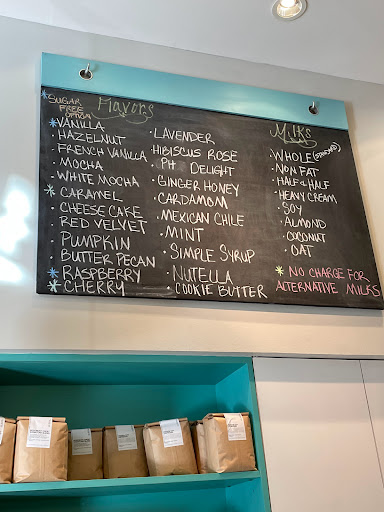 * SUGAR
FREE
OPTION
Flavors
* VANILLA
· HAZELNUT
· FRENCH VANILLA
· MOCHA
· WHITE MOCHA
* CARAMEL
· CHEESE CAKE
· RED VELVET
· PUMPKIN
· BUTTER PECAN
* RASPBERRY
* CHERRY
· LAVENDER
· HIBISCUS ROSE
· PH DELIGHT
· GINGER HONEY
· CARDAMOM
· MEXICAN CHILE
· MINT
· SIMPLE SYRUP
· NUTELLA
· COOKIE BUTTER
Milks
· WHOLE (STANDARD)
· NON FAT
· HALF & HALF
· HEAVY CREAM
· SOY
· ALMOND
· COCONUT
· OAT
* NO CHARGE FOR
ALTERNATIVE MILKS